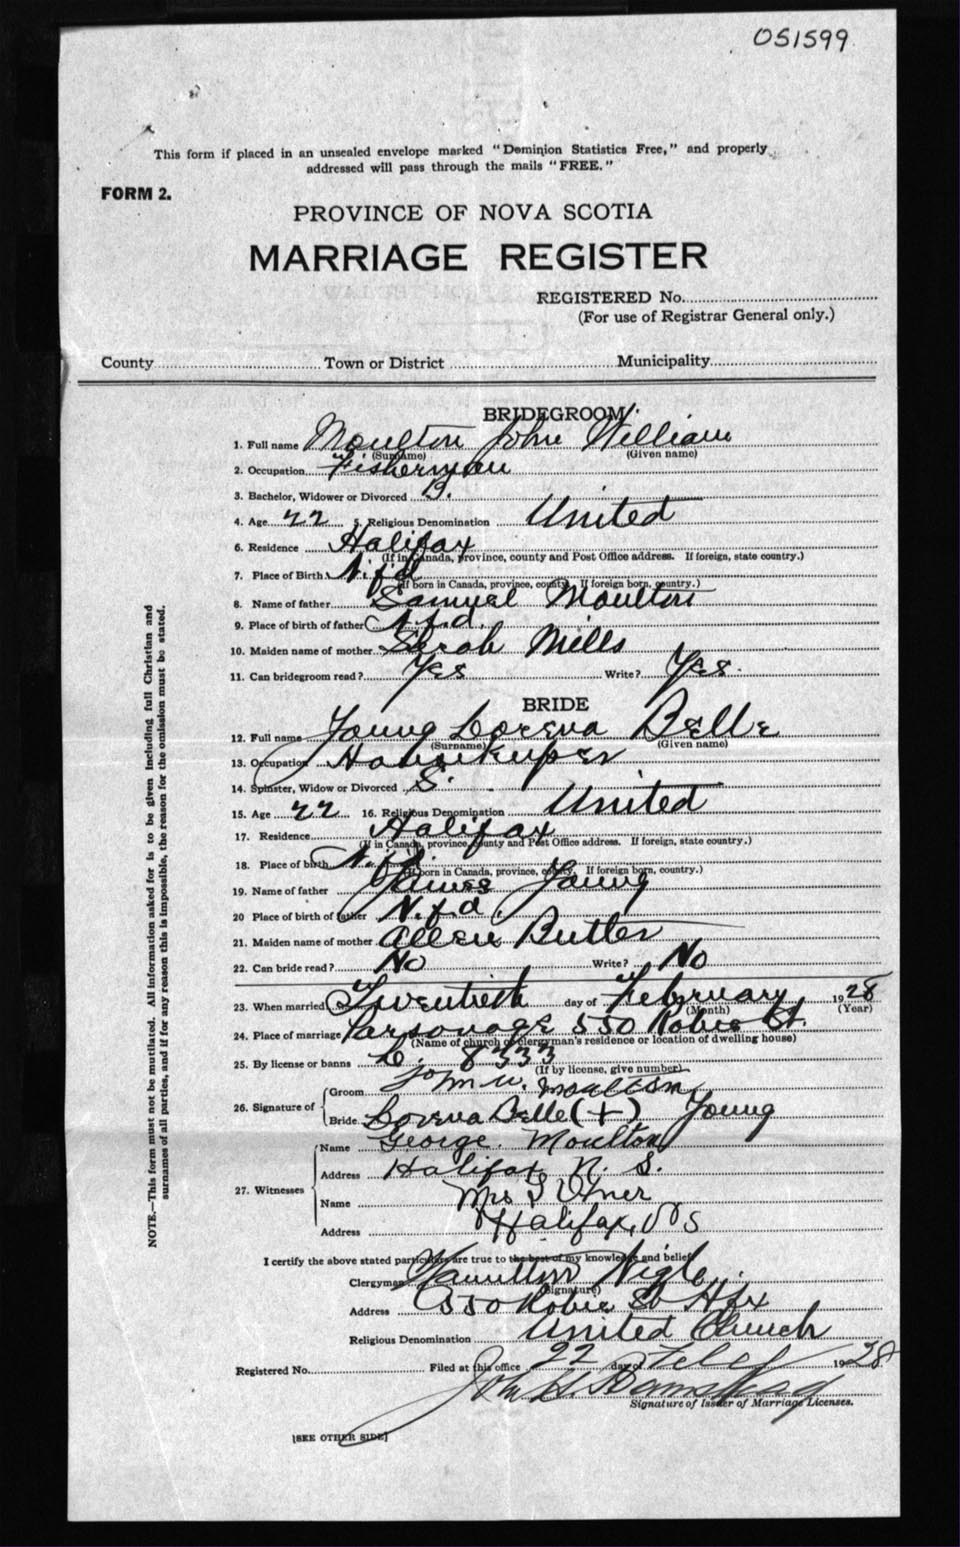 051599
This form if placed in an unsealed envelope marked "Dominion Statistics Free," and properly
addressed will pass through the mails "FREE."
FORM 2.
PROVINCE OF NOVA SCOTIA
MARRIAGE REGISTER
REGISTERED No.
(For use of Registrar General only.)
County Town or District Municipality
BRIDEGROOM
1. Full name Moulton John William
(Surname) (Given name)
2. Occupation Fisherman
3. Bachelor, Widower or Divorced B.
4. Age 22 5. Religious Denomination United
6. Residence Halifax
(If in Canada, province, county and Post Office address. If foreign, state country.)
7. Place of Birth N.f'd
(If born in Canada, province, county, If foreign born, country.)
8. Name of father Samuel Moulton
9. Place of birth of father N.f.d.
10. Maiden name of mother Sarah Mills
11. Can bridegroom read? Yes Write? Yes.
BRIDE
12. Full name Young Loreva Belle
(Surname) (Given name)
13. Occupation Housekeeper
14. Spinster, Widow or Divorced S.
15. Age 22 16. Religious Denomination United
17. Residence Halifax
(If in Canada, province, county and Post Office address. If foreign, state country.)
18. Place of birth N.f'd.
(If born in Canada, province, county, If foreign born, country.)
19. Name of father James Young
20 Place of birth of father N.f.d.
21. Maiden name of mother Allen Butler
22. Can bride read? No Write? No
23. When married Twentieth day of February 1928
(Month) (Year)
24. Place of marriage Parsonage 550 Robie St.
(Name of church or clergyman's residence or location of dwelling house)
25. By license or banns L. 8333
(If by license, give number)
26. Signature of Groom John W. Moulton
Bride Loreva Belle (+) Young
27. Witnesses Name George Moulton
Address Halifax N. S.
Name Mrs
Address Halifax, N S
I certify the above stated particulars are true to the best of my knowledge and belief
Clergyman Hamilton
(Signature)
Address 550 Robie St Hfx
Religious Denomination United Church
Registered No. Filed at this office 22 day of Feby 1928
John H. 
Signature of Issuer of Marriage Licenses.
[SEE OTHER SIDE]
NOTE.—This form must not be mutilated. All information asked for is to be given including full Christian and
surnames of all parties, and if for any reason this is impossible, the reason for the omission must be stated.